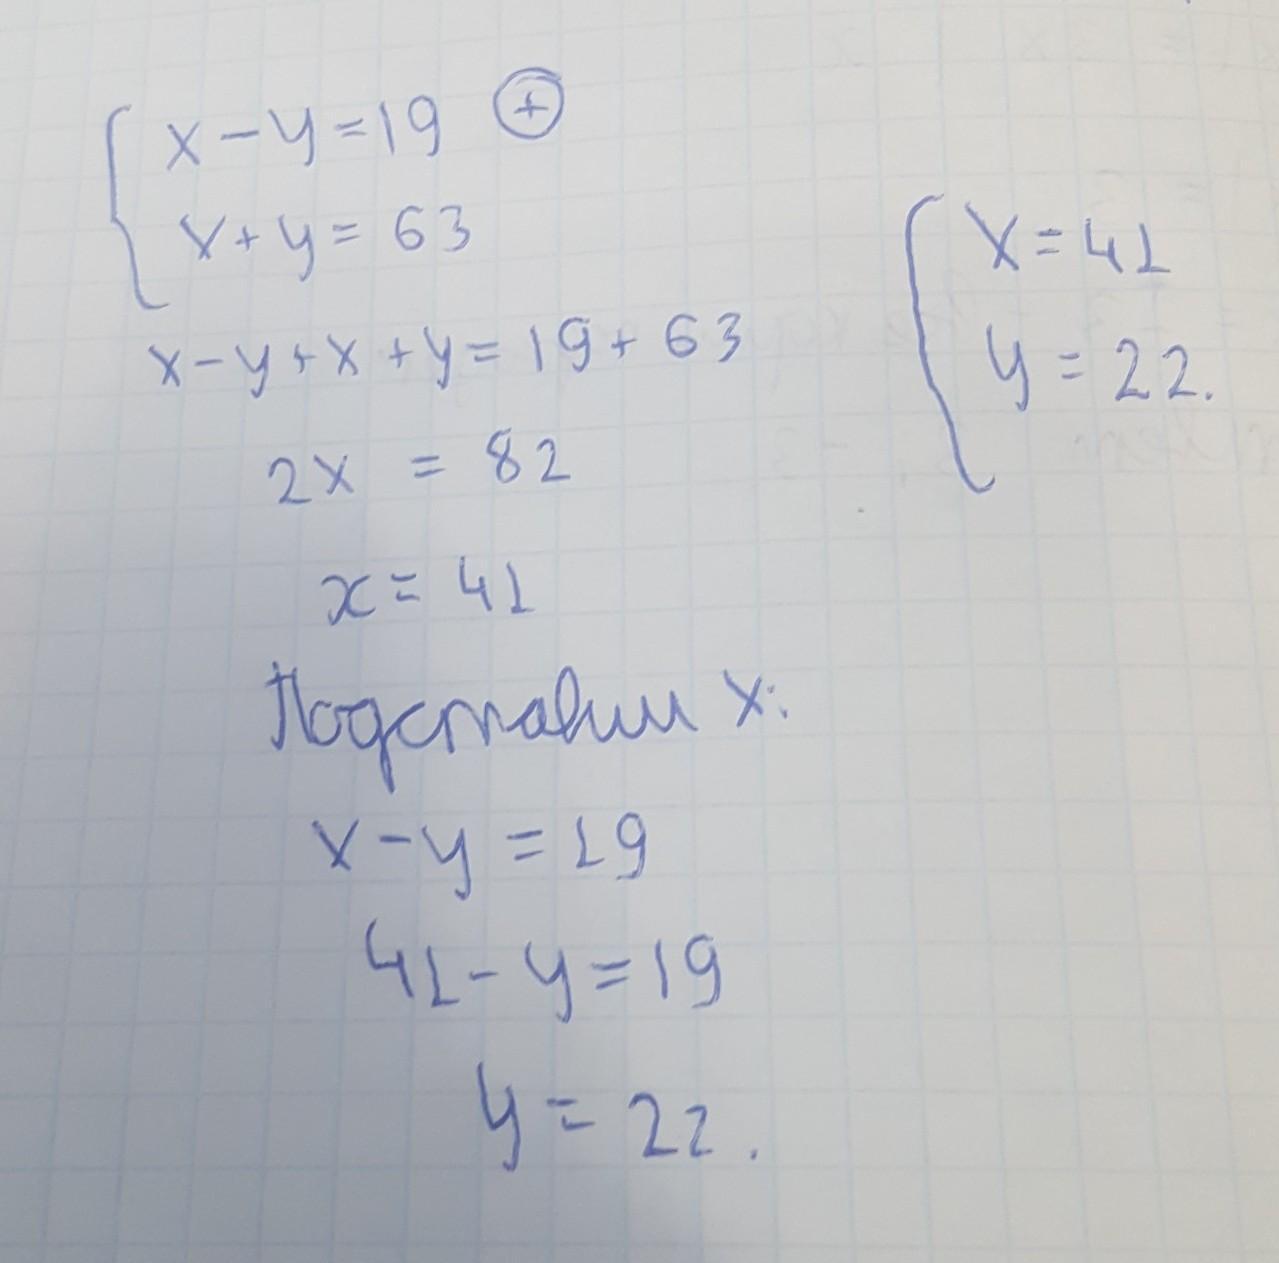 x - y = 19 (+)
x + y = 63
x - y + x + y = 19 + 63
2x = 82
x = 41
Подставим x:
x - y = 19
41 - y = 19
y = 22.
x = 41
y = 22.